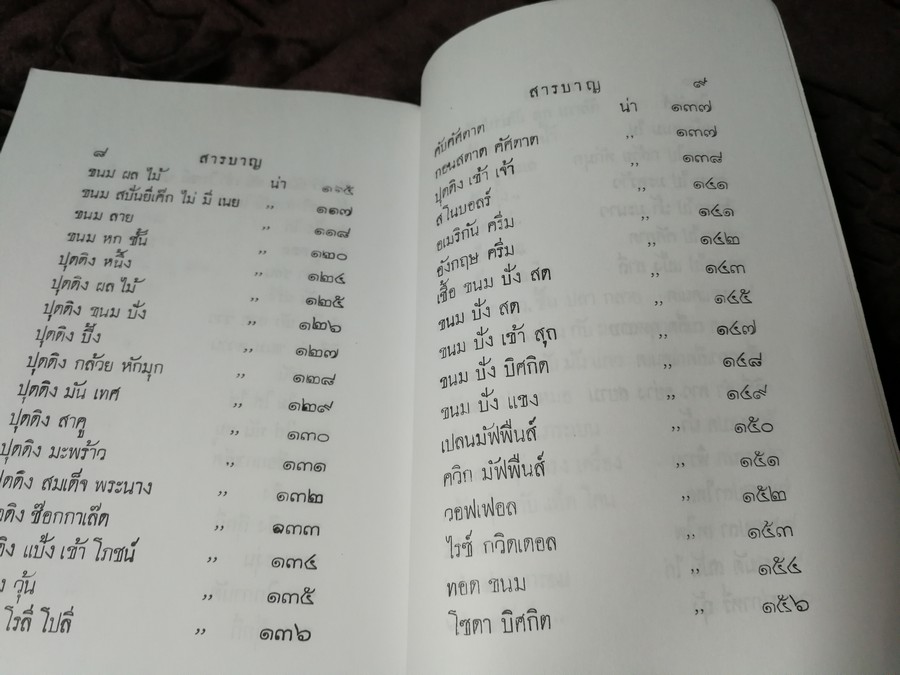 ๘ สารบาญ
ขนม ผล ไม้ น่า
ขนม สบั่นยี่เค็ก ไม่ มี เนย ,, ๑๑๗
ขนม ลาย ,, ๑๑๘
ขนม หก ชั้น ,, ๑๒๐
ปุดดิง หนึ้ง ,, ๑๒๔
ปุดดิง ผล ไม้ ,, ๑๒๕
ปุดดิง ขนม บั่ง ,, ๑๒๖
ปุดดิง ปิ้ง ,, ๑๒๗
ปุดดิง กล้วย หักมุก ,, ๑๒๘
ปุดดิง มัน เทศ ,, ๑๒๙
ปุดดิง สาคู ,, ๑๓๐
ปุดดิง มะพร้าว ,, ๑๓๑
ปุดดิง สมเด็จ พระนาง ,, ๑๓๒
ดิง ช๊อกกาเล็ต ,, ๑๓๓
ง แป้ง เข้า โภชน์ ,, ๑๓๔
ง วุ้น ,, ๑๓๕
โรลี่ โปลี่ ,, ๑๓๖
สารบาญ ๙
คับคัศตาด น่า ๑๓๗
กอนสตาด คัศตาด ,, ๑๓๗
ปุดดิง เข้า เจ้า ,, ๑๓๘
สโนบอลร์ ,, ๑๔๑
อเมริกัน ครึม ,, ๑๔๑
อังกฤษ ครึม ,, ๑๔๒
เชื้อ ขนม บั่ง สด ,, ๑๔๓
ขนม บั่ง สด ,, ๑๔๕
ขนม บั่ง เข้า สุก ,, ๑๔๗
ขนม บั่ง บิศกิต ,, ๑๔๘
ขนม บั่ง แขง ,, ๑๔๙
เปลนมัฟฟีนส์ ,, ๑๕๐
ควิก มัฟฟีนส์ ,, ๑๕๑
วอฟเฟอล ,, ๑๕๒
ไรซ์ กวิดเดอล ,, ๑๕๓
ทอด ขนม ,, ๑๕๔
โซดา บิศกิต ,, ๑๕๖